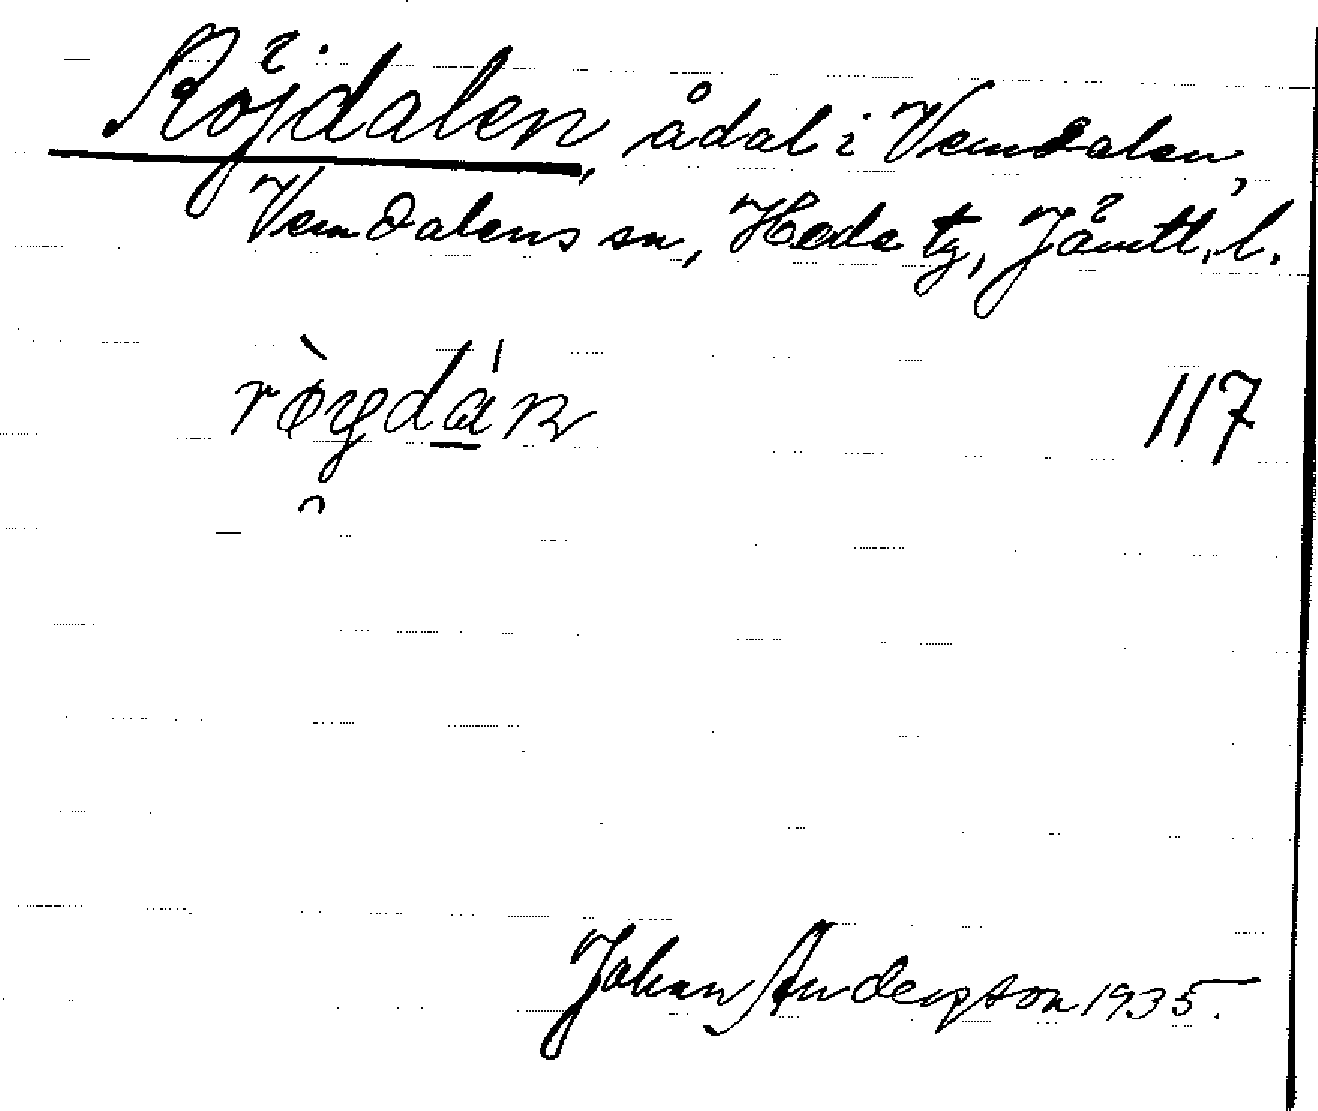 Röjdalen, ådal i Vemdalen,
Vemdalens sn, Hede tg, Jämtl. l.
rø̀ydán 117
Johan Anderson 1935.